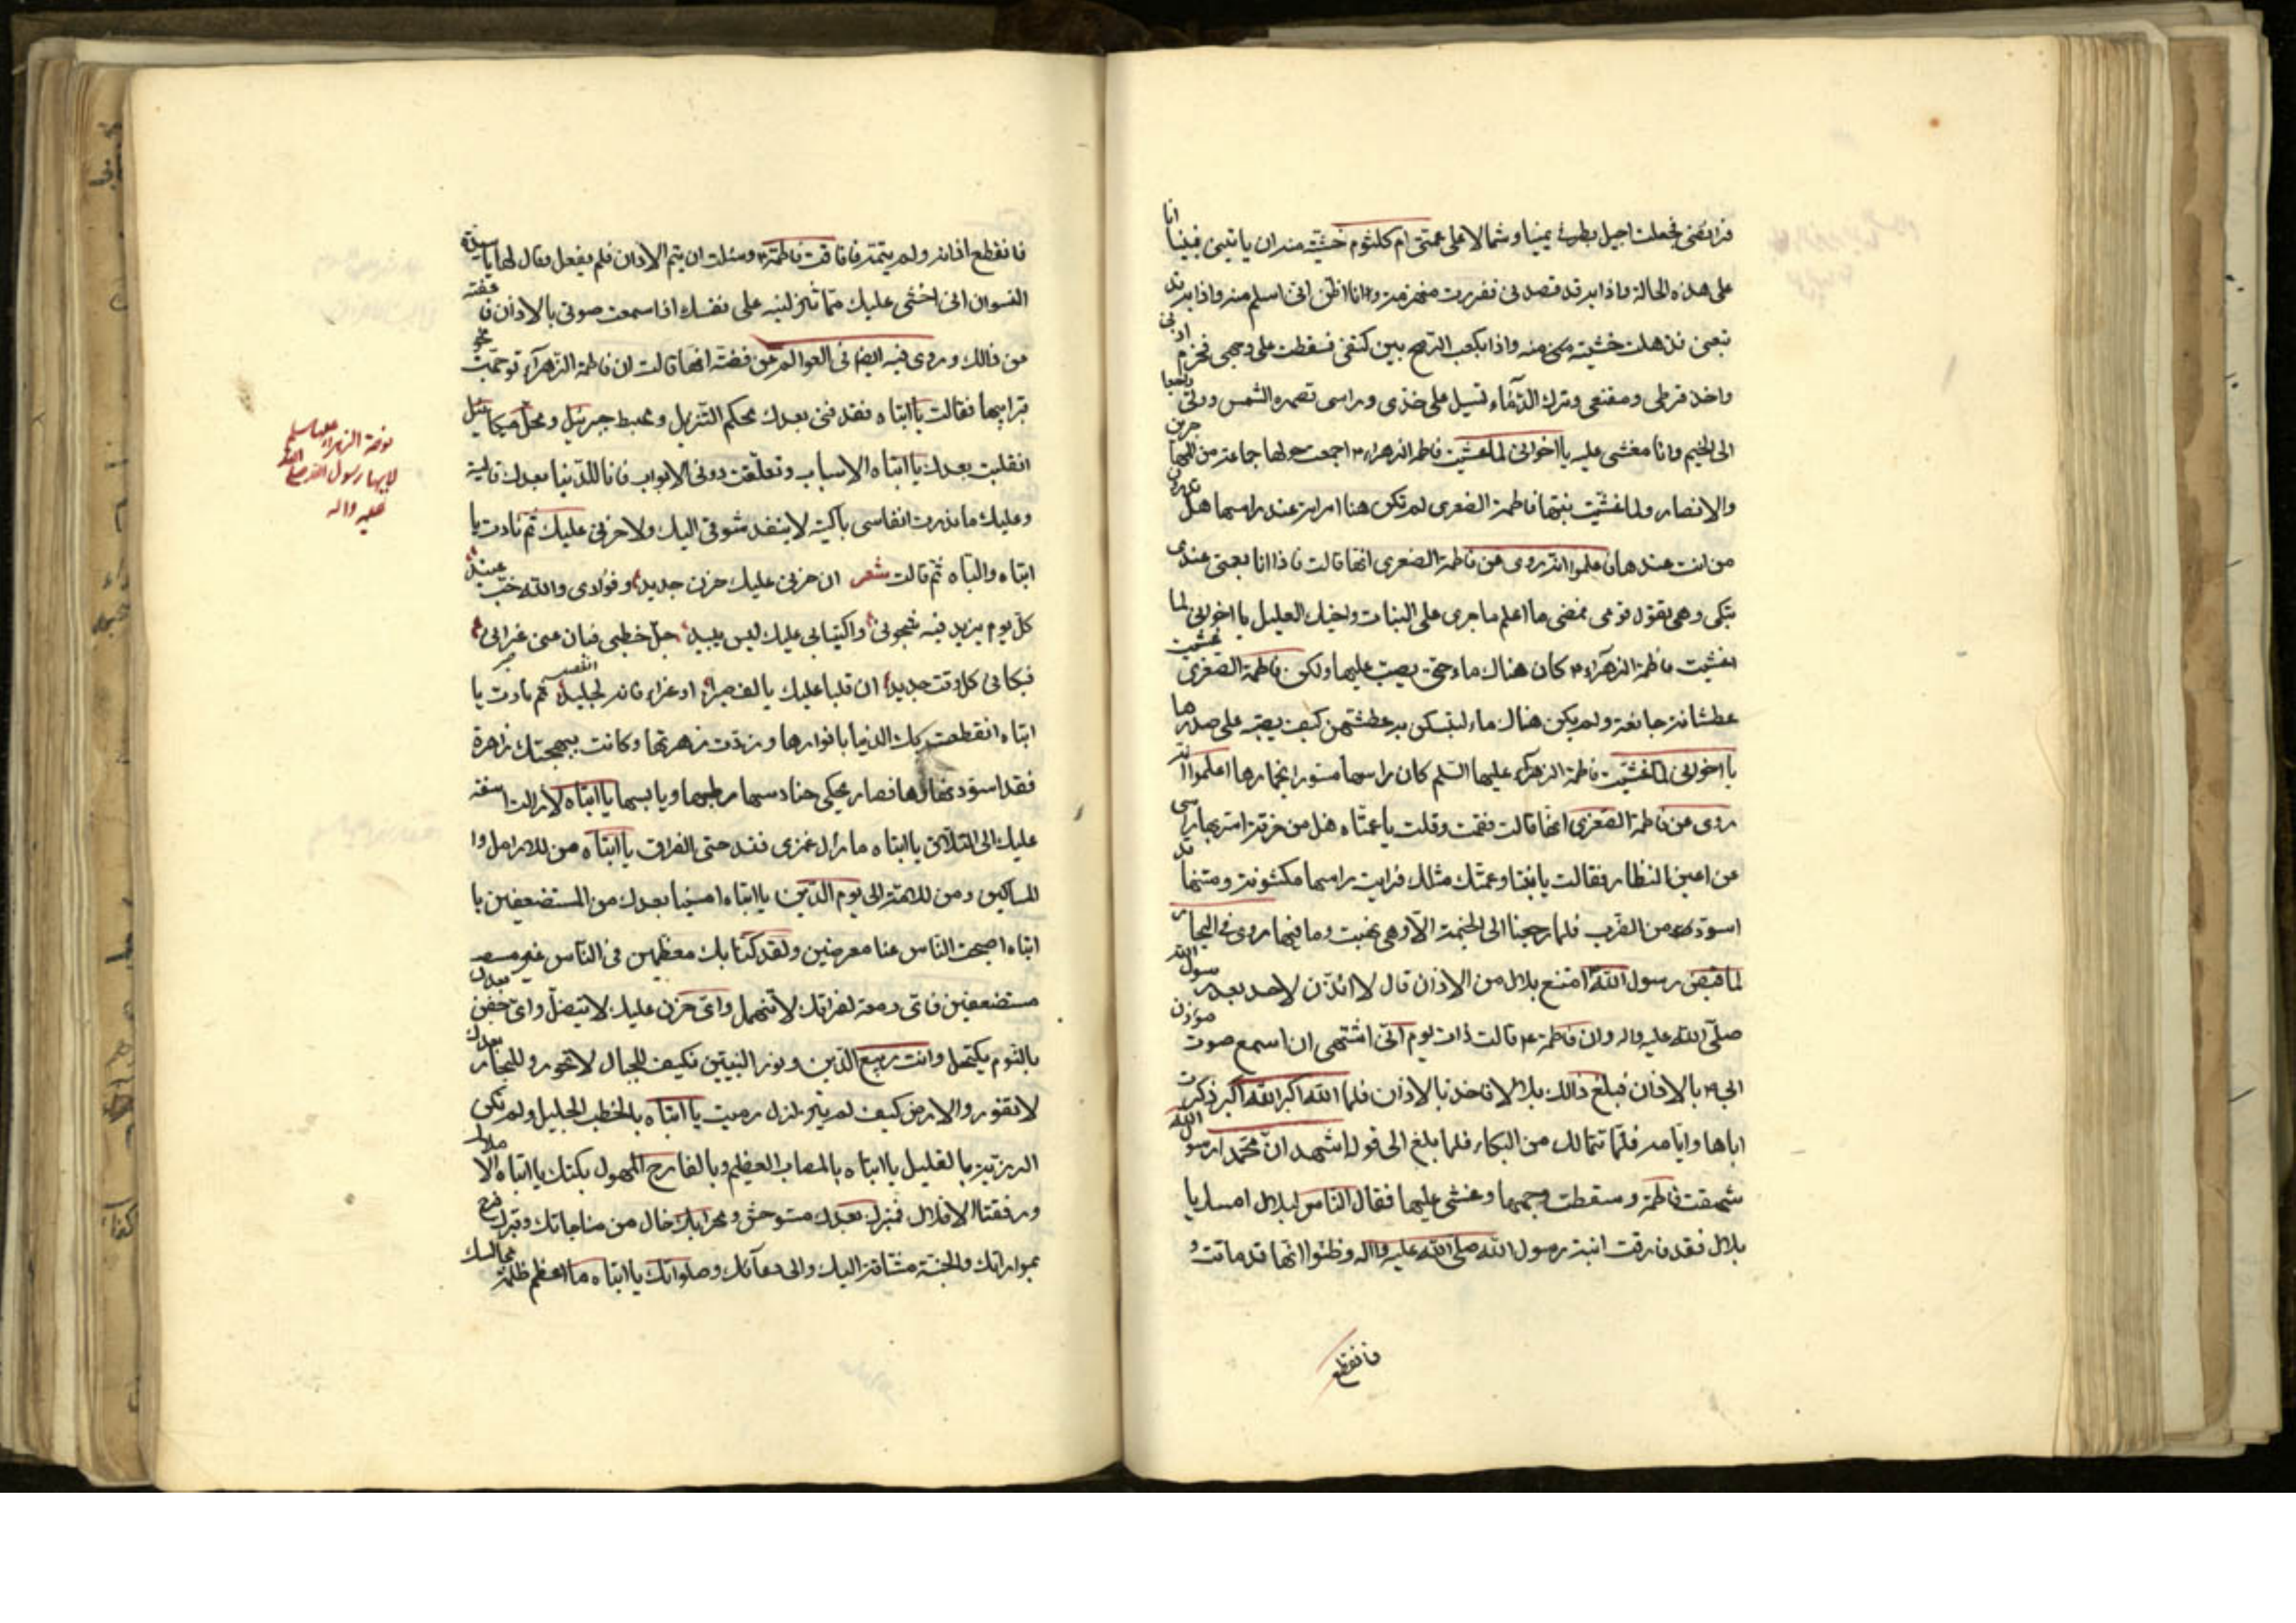 فرائضي فجعلت اجيل بطرفي يمينا وشمالا على عمتي ام كلثوم خشية منه ان ياتيني فبينا انا
على هذه الحالة واذا به قد قصدني ففررت منهزمة وانا اظن اني اسلم منه واذا به قد
تبعني فذهلت خشية منه واذا بكعب الرمح بين كتفي فسقطت على وجهي فخرم اذني
واخذ قرطي ومقنعتي وترك الدماء تسيل على خدي وراسي تصهره الشمس وولى راجعا
الى الخيم وانا مغشي عليه يا اخواني لما غشيت فاطمة الزهراء اجمعت حولها جماعة من المهاجرين
والانصار ولما غشيت بنتها فاطمة الصغرى لم تكن هنا امراة عند راسها هل تدرون
من انت عندها فاعلموا انه روى عن فاطمة الصغرى انها قالت فاذا انا بعمتي عندي
تبكي وهي تقول قومي نمضي ما اعلم ما جرى على البنات واخيك العليل يا اخواني لما
اغشيت فاطمة الزهراء كان هناك ماء حتى يصب عليها ولكن فاطمة الصغرى غشيت
عطشانة جائعة ولم يكن هناك ماء لتسكن به عطشهن كيف يصبه على صدرها
يا اخواني لما غشيت فاطمة الزهراء عليها السلم كان راسها مستورا بخمارها اعلموا انه
روى عن فاطمة الصغرى انها قالت فقمت وقلت يا عمتاه هل من خرقة استر بها راسي
عن اعين النظار فقالت يا بنتاه وعمتك مثلك فرايت راسها مكشوفة ومتنها قد
اسود من الضرب فلما رجعنا الى الخيمة الا وهي نهبت وما فيها روى في البحار
لما قبض رسول الله امتنع بلال من الاذان قال لا اؤذن لاحد بعد رسول الله
صلى الله عليه واله وان فاطمة قالت ذات يوم اني اشتهي ان اسمع صوت مؤذن
ابي بالاذان فبلغ ذلك بلالا فاخذ بالاذان فلما الله اكبر الله اكبر ذكرت
اباها وايامه فلم تتمالك من البكاء فلما بلغ الى قوله اشهد ان محمدا رسول الله
شهقت فاطمة وسقطت وجهها وغشي عليها فقال الناس لبلال امسك يا
بلال فقد فارقت ابنة رسول الله صلى الله عليه واله وظنوا انها قد ماتت و
فانقطع
فانقطع اذانه ولم يتمه فافاقت فاطمة وسئلت ان يتم الاذان فلم يفعل وقال لها يا سيدة
النسوان اني اخشى عليك مما تنزلينه على نفسك اذا سمعت صوتي بالاذان فاعفته
من ذالك وروى فيه ايضا في العوالم عن فضة انها قالت ان فاطمة الزهراء توجهت نحو
تراب ابيها فقالت يا ابتاه فقد فنى بعدك محكم التنزيل ومهبط جبرئيل ومحل ميكائيل
انقلبت بعدك يا ابتاه الاسباب وتغلقت دوني الابواب فانا للدنيا بعدك قالية
وعليك ما تردت انفاسي باكية لا ينفد شوقي اليك ولا حزني عليك ثم نادت يا
ابتاه والباه ثم قالت شعر ان حزني عليك حزن جديد وفؤادي والله صب عنيد
كل يوم يزيد فيه شجوني واكتيابي عليك ليس يبيد جل خطبي فبان عني عزائي
فبكائي كل وقت جديد ان قلبا عليك يالف صبرا او عزاء فانه لجليد ثم نادت يا
ابتاه انقطعت بك الدنيا بانوارها وزدت زهرتها وكانت ببهجتك زاهرة
فقد اسود نهارها فصار يحكي حنادسها رطبها ويابسها يا ابتاه لا زالت اسفة
عليك الى التلاق يا ابتاه ما زال غمضي فقد حتى الفراق يا ابتاه من للارامل وا
للمساكين ومن للامة الى يوم الدين يا ابتاه امسينا بعدك من المستضعفين يا
ابتاه اصبحت الناس عنا معرضين ولقد كنا بك معظمين في الناس غير
مستضعفين فاي دمعة لفراقك لا تنهمل واي حزن عليك لا يتصل واي جفن بعدك
بالنوم يكتحل وانت ربيع الدين ونور النبيين فكيف للجبال لا تمور وللبحار بعدك
لا تغور والارض كيف لم تتزلزل رميت يا ابتاه بالخطب الجليل ولم تكن
الرزية بالقليل يا ابتاه بالمصاب العظيم وبالفادح المهول بكتك يا ابتاه الاملاك
ووقفت الافلاك فمنبرك بعدك مستوحش ومحرابك خال من مناجاتك وقبرك فرح
بمواراتك والجنة مشتاقة اليك والى دعائك وصلواتك يا ابتاه ما اعظم ظلمة مجالسك
نوحة الزهراء عليها سلم
لابيها رسول الله صلى الله
عليه واله